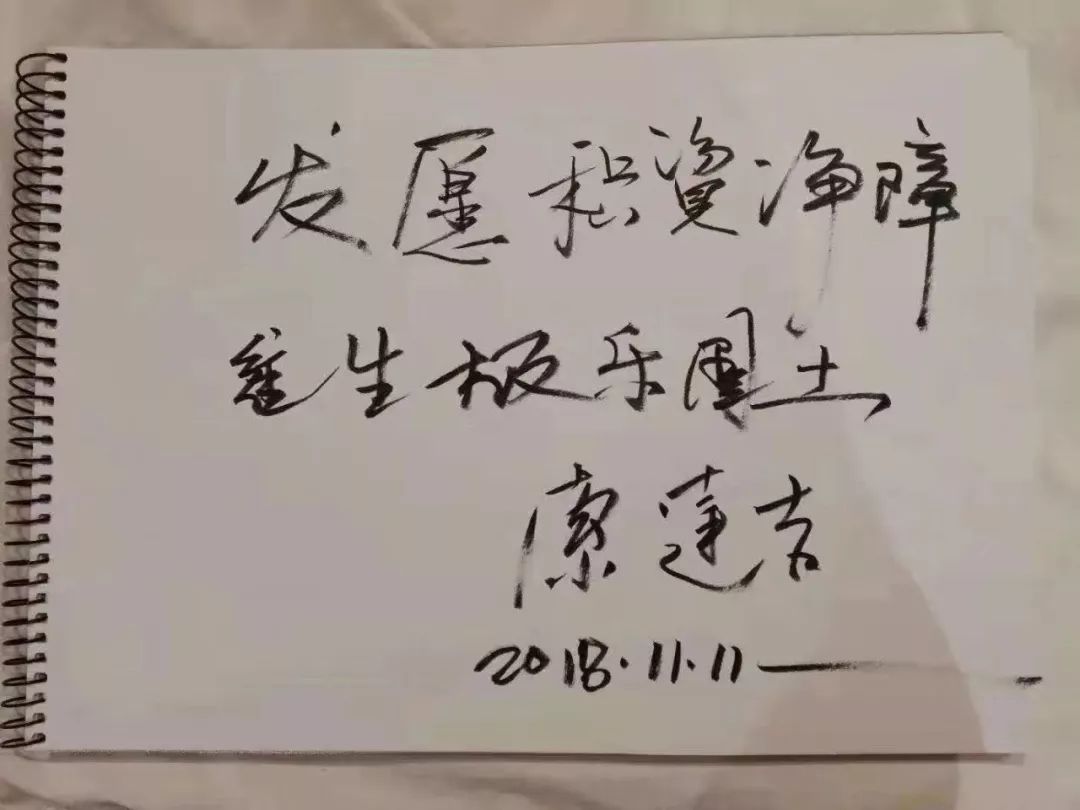 发愿积資净障
往生极乐國土
索達吉
2018.11.11